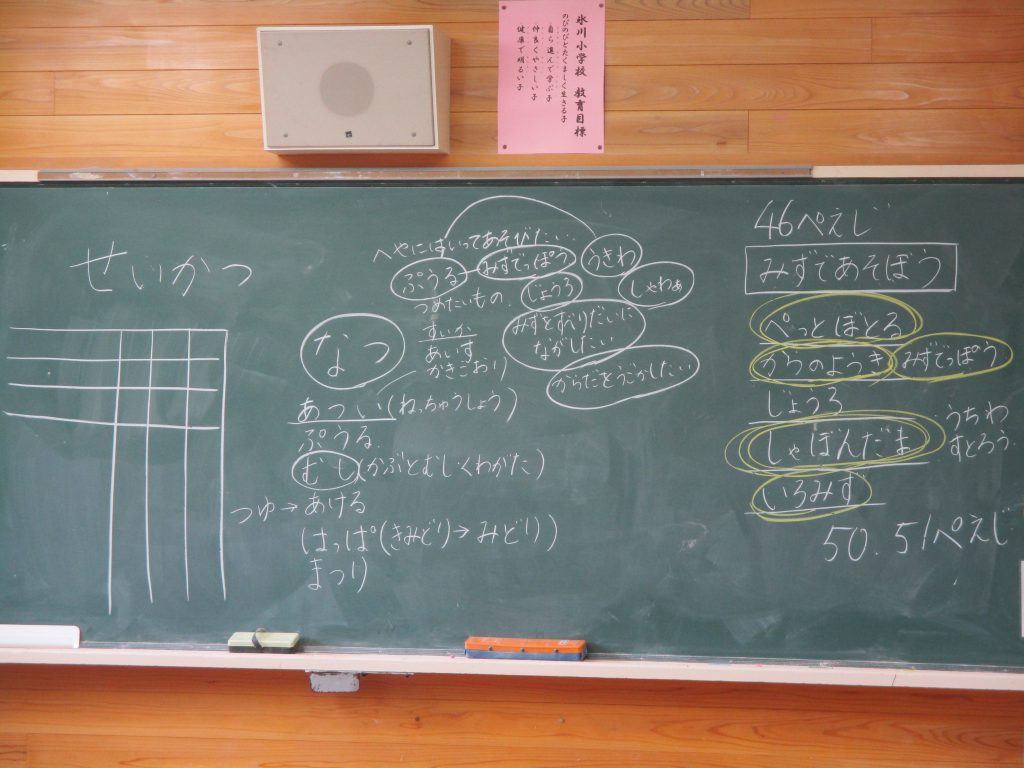 氷川小学校 教育目標
のびのびとたくましく生きる子
自ら進んで学ぶ子
仲良くやさしい子
健康で明るい子
せいかつ
へやにはいってあそびたい…
ぷうる
みずでっぽう
うきわ
つめたいもの
じょうろ
しゃわぁ
すいか
あいす
かきごおり
みずをすべりだいに
ながしたい
からだをうごかしたい
なつ
あつい(ねっちゅうしょう)
ぷうる
むし(かぶとむしくわがた)
つゆ→あける
(はっぱ(きみどり→みどり))
まつり
46ぺえじ
みずであそぼう
ぺっとぼとる
からのようき
みずでっぽう
じょうろ
しゃぼんだま
・うちわ
・すとろう
いろみず
50.51ぺえじ